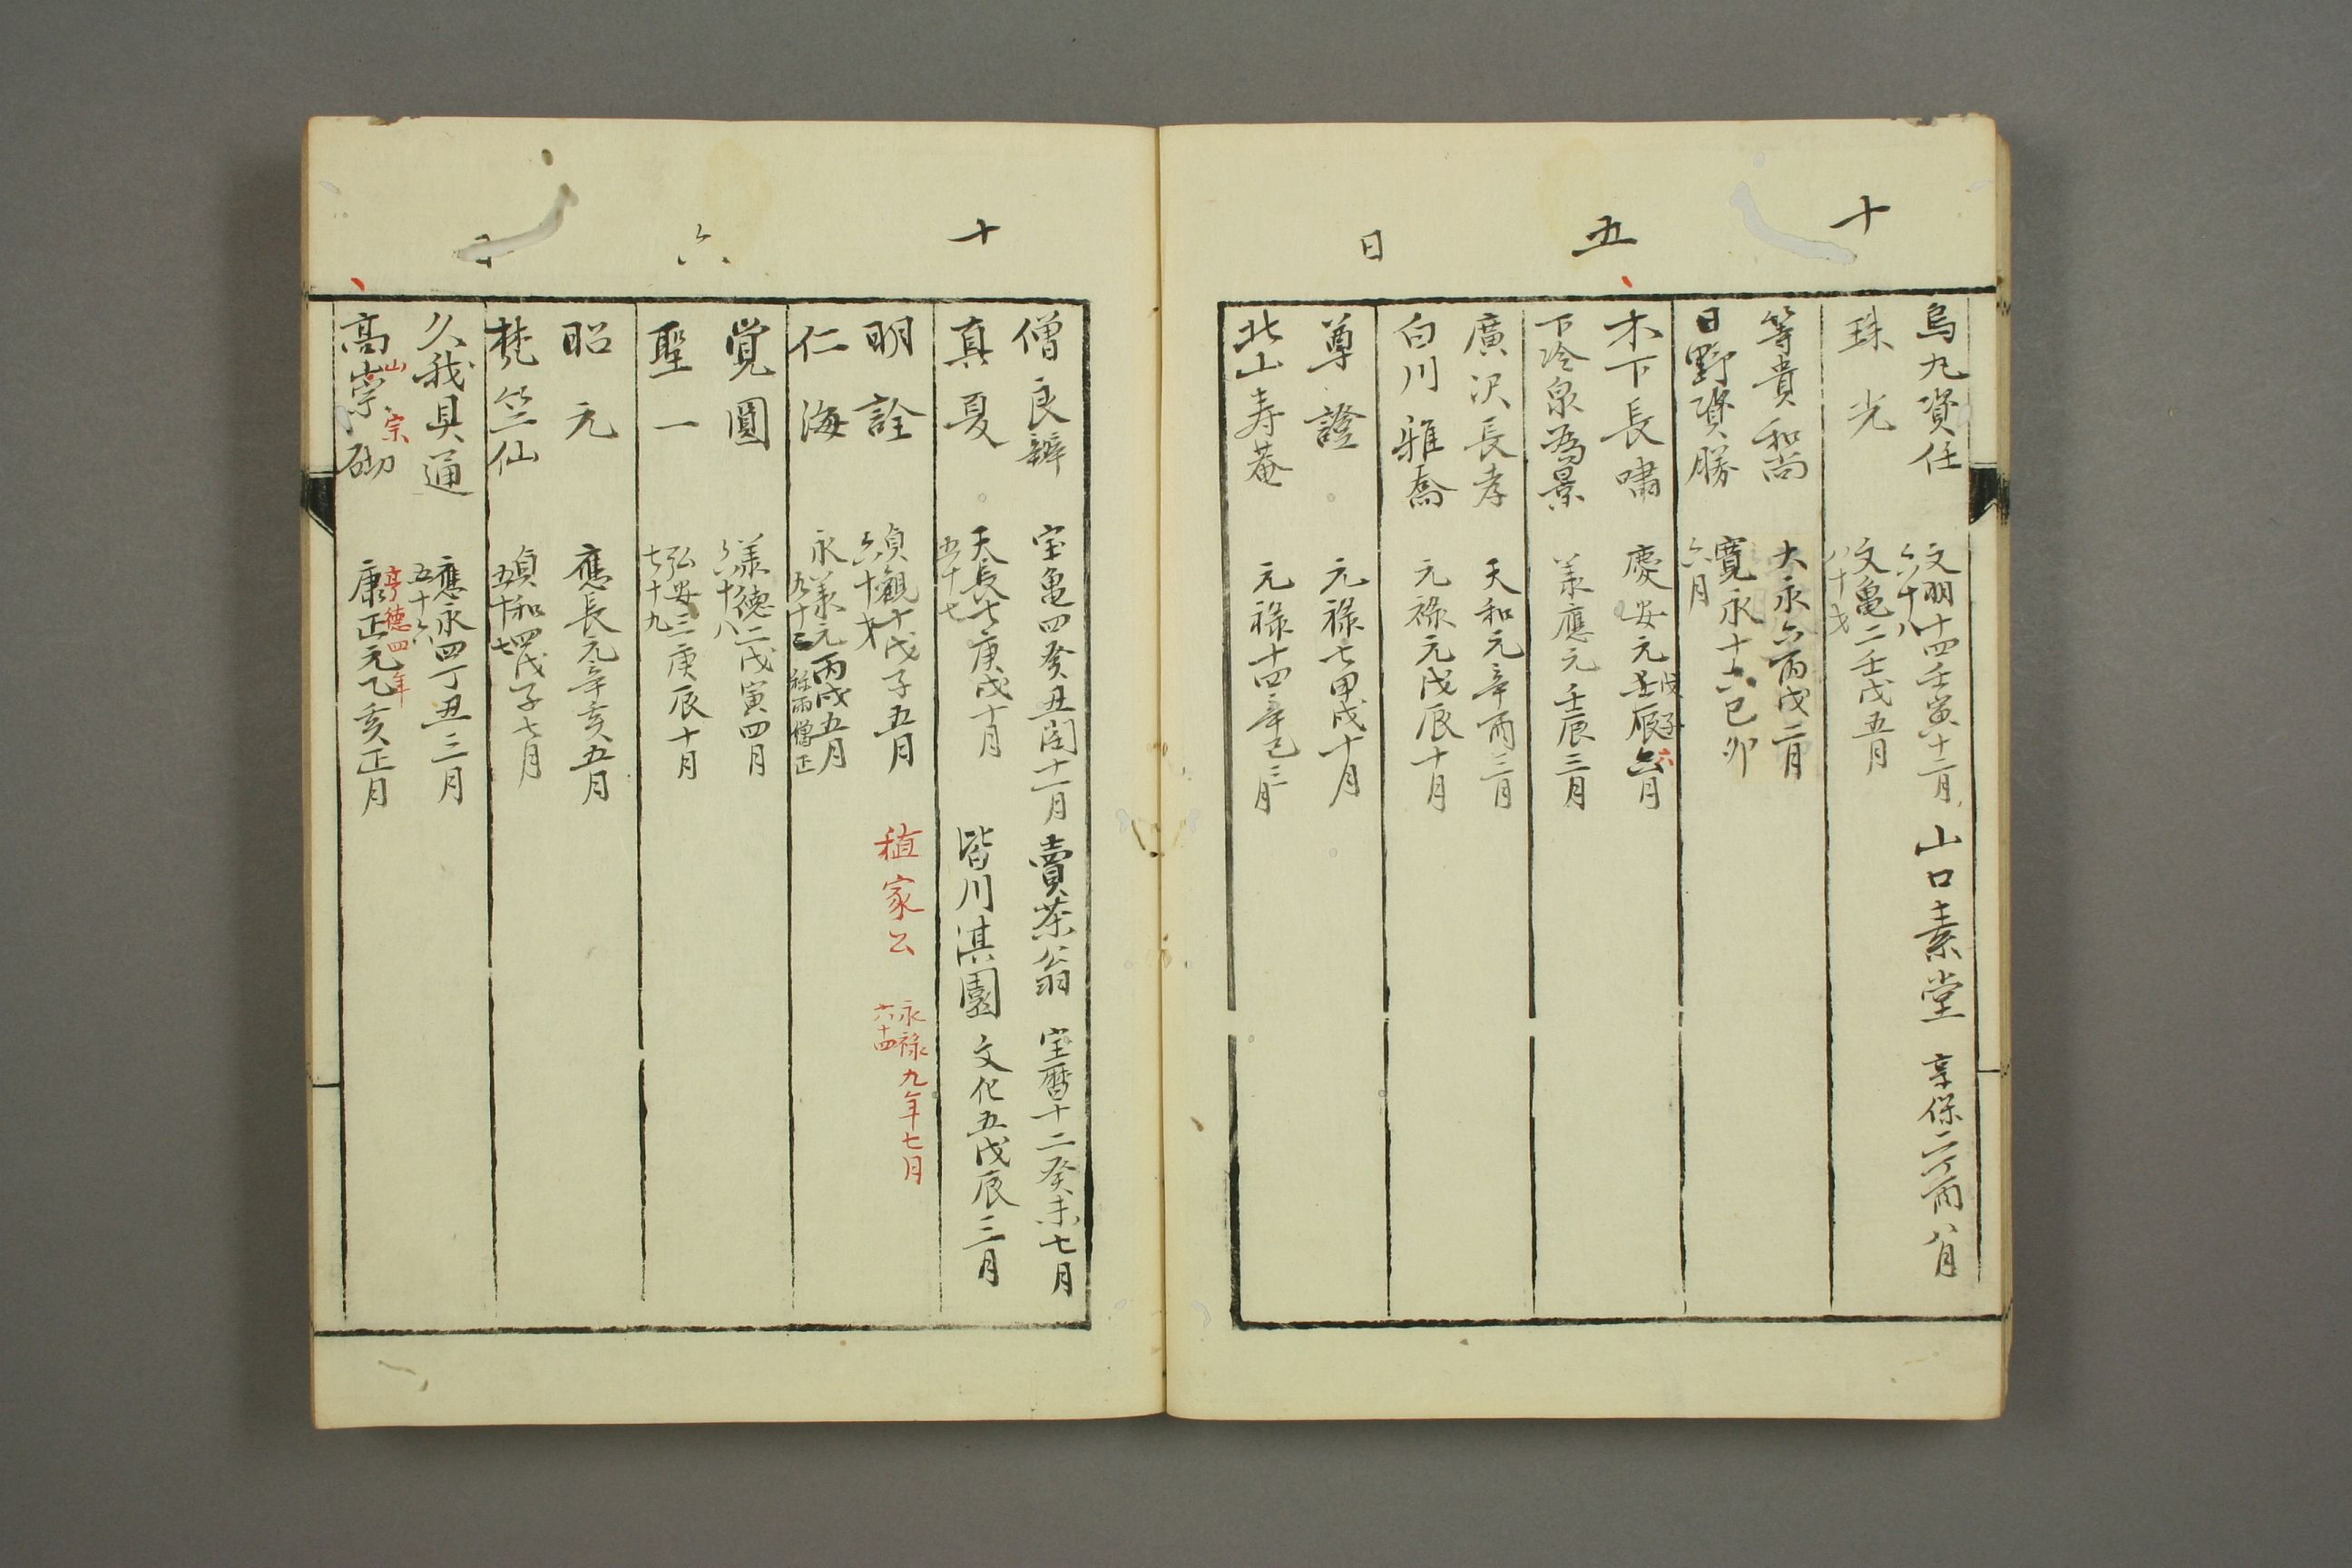 十五日
烏丸資任
文明十四壬寅十二月
六十八
山口素堂
享保二丙八月
珠光
文亀二壬戌五月
八十才
等貴和尚
大永六丙戌二月
日野資勝
寛永十六己卯
六月
木下長嘯
慶安元壬辰六月
戊子
六
下冷泉為景
承應元壬辰三月
廣沢長孝
天和元辛酉三月
白川雅喬
元禄元戊辰十月
尊證
元禄七甲戌十月
北山寿菴
元禄十四辛巳三月
十六日
僧良辨
宝亀四癸丑閏十一月
賣茶翁
宝暦十二癸未七月
真夏
天長七庚戌十月
五十七
皆川淇園
文化五戊辰三月
明詮
貞觀十戊子五月
六十才
植家公
永禄九年七月
六十四
仁海
永承元丙戌五月
九十二
雨僧正
覚圓
承徳二戊寅四月
六十八
聖一
弘安三庚辰十月
七十九
昭元
應長元辛亥五月
梵竺仙
貞和四戊子七月
五十七
久我具通
應永四丁丑三月
五十六
高崇砌
山
宗
康正元乙亥正月
享德四年